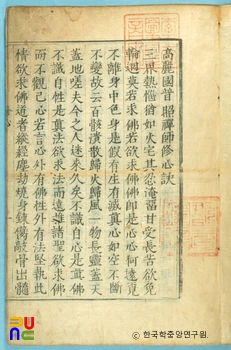 高麗國普照禪師修心訣
三界熱惱猶如火宅其忍淹留甘受長苦欲免
輪迴莫若求佛若欲求佛佛卽是心心何遠覓
不離身中色身是假有生有滅眞心如空不斷
不變故云百骸潰散歸火歸風一物長靈蓋天
蓋地嗟夫今之人迷來久矣不識自心是眞佛
不識自性是眞法欲求法而遠推諸聖欲求佛
而不觀己心若言心外有佛性外有法堅執此
情欲求佛道者縱經塵劫燒身鍊臂敲骨出髓
한국학중앙연구원